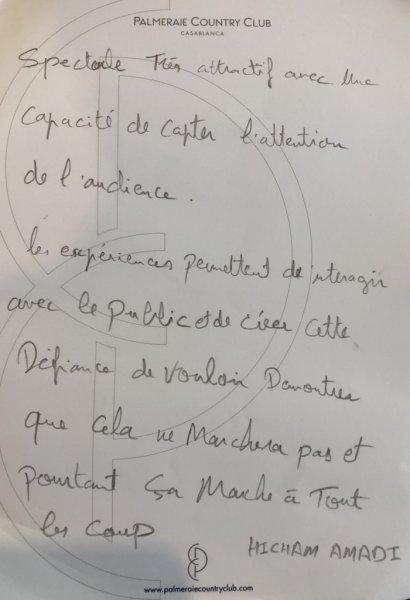 PALMERAIE COUNTRY CLUB
CASABLANCA
Spectacle Très attractif avec Une
Capacité de Capter l'attention
de l'audience.
les expériences permettent de interagir
avec le public et de créer Cette
Défiance de vouloir Demontrer
que Cela ne Marchera pas et
pourtant Sa Marche à Tout
les coup
HICHAM AMADI
www.palmeraiecountryclub.com